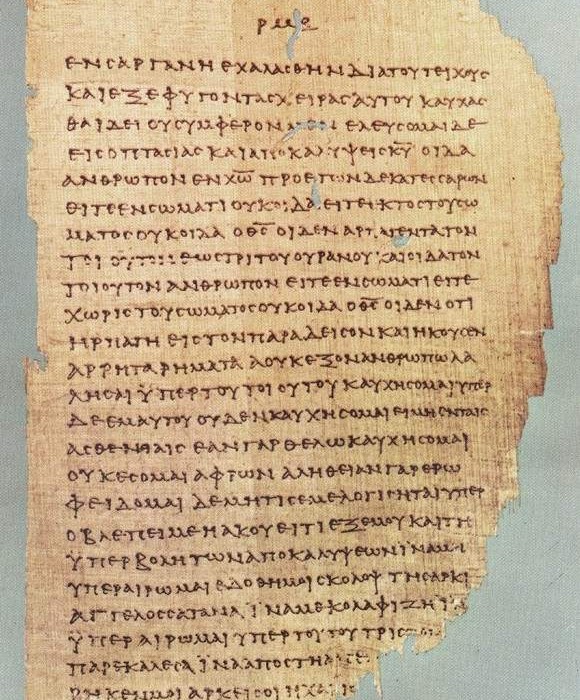 ρμε
ενϲαργανηεχαλαϲθηνδιατουτειχουϲ
καιεξεφυγονταϲχειραϲαυτουκαυχαϲ
θαιδειουϲυμφερον ελευϲομαιδε
ειϲοπταϲιαϲκαιαποκαλυψειϲκ̅υ̅οιδα
ανθρωπονενχ̅ω̅προετωνδεκατεϲϲαρων
ειτεενϲωματιουκοιδαειτεεκτοϲτουϲω
ματοϲουκοιδαοθ̅ϲ̅οιδεναρπαγεντατον
τοιουτονεωϲτριτουουρανουκαιοιδατον
τοιουτονανθρωπονειτεενϲωματιειτε
χωριϲτουϲωματοϲουκοιδαοθ̅ϲ̅οιδενοτι
ηρπαγηειϲτονπαραδειϲονκαιηκουϲεν
αρρηταρηματααουκεξονανθρωπωλα
ληϲαιϋπερτουτοιουτουκαυχηϲομαιυπερ
δεεμαυτουουδενκαυχηϲομαιειμηενταιϲ
αϲθενιαιϲεανγαρθελωκαυχηϲομαι
ουκεϲομαιαφρωναληθειανγαρερω
φειδομαιδεμητιϲεμελογιϲηταιυπερ
οβλεπειμεηακουειτιεξεμουκαιτη
ϋπερβολητωναποκαλυψεωνϊναμη
υπεραιρωμαιεδοθημοιϲκολοψτηϲαρκι
αγγελοϲϲαταναϊναμεκολαφιζηϊ
ϋπεραιρωμαιυπερτουτουτριϲ
παρεκαλεϲαϊνααποϲτη
ρηκενμοιαρκειϲοιηχαρ